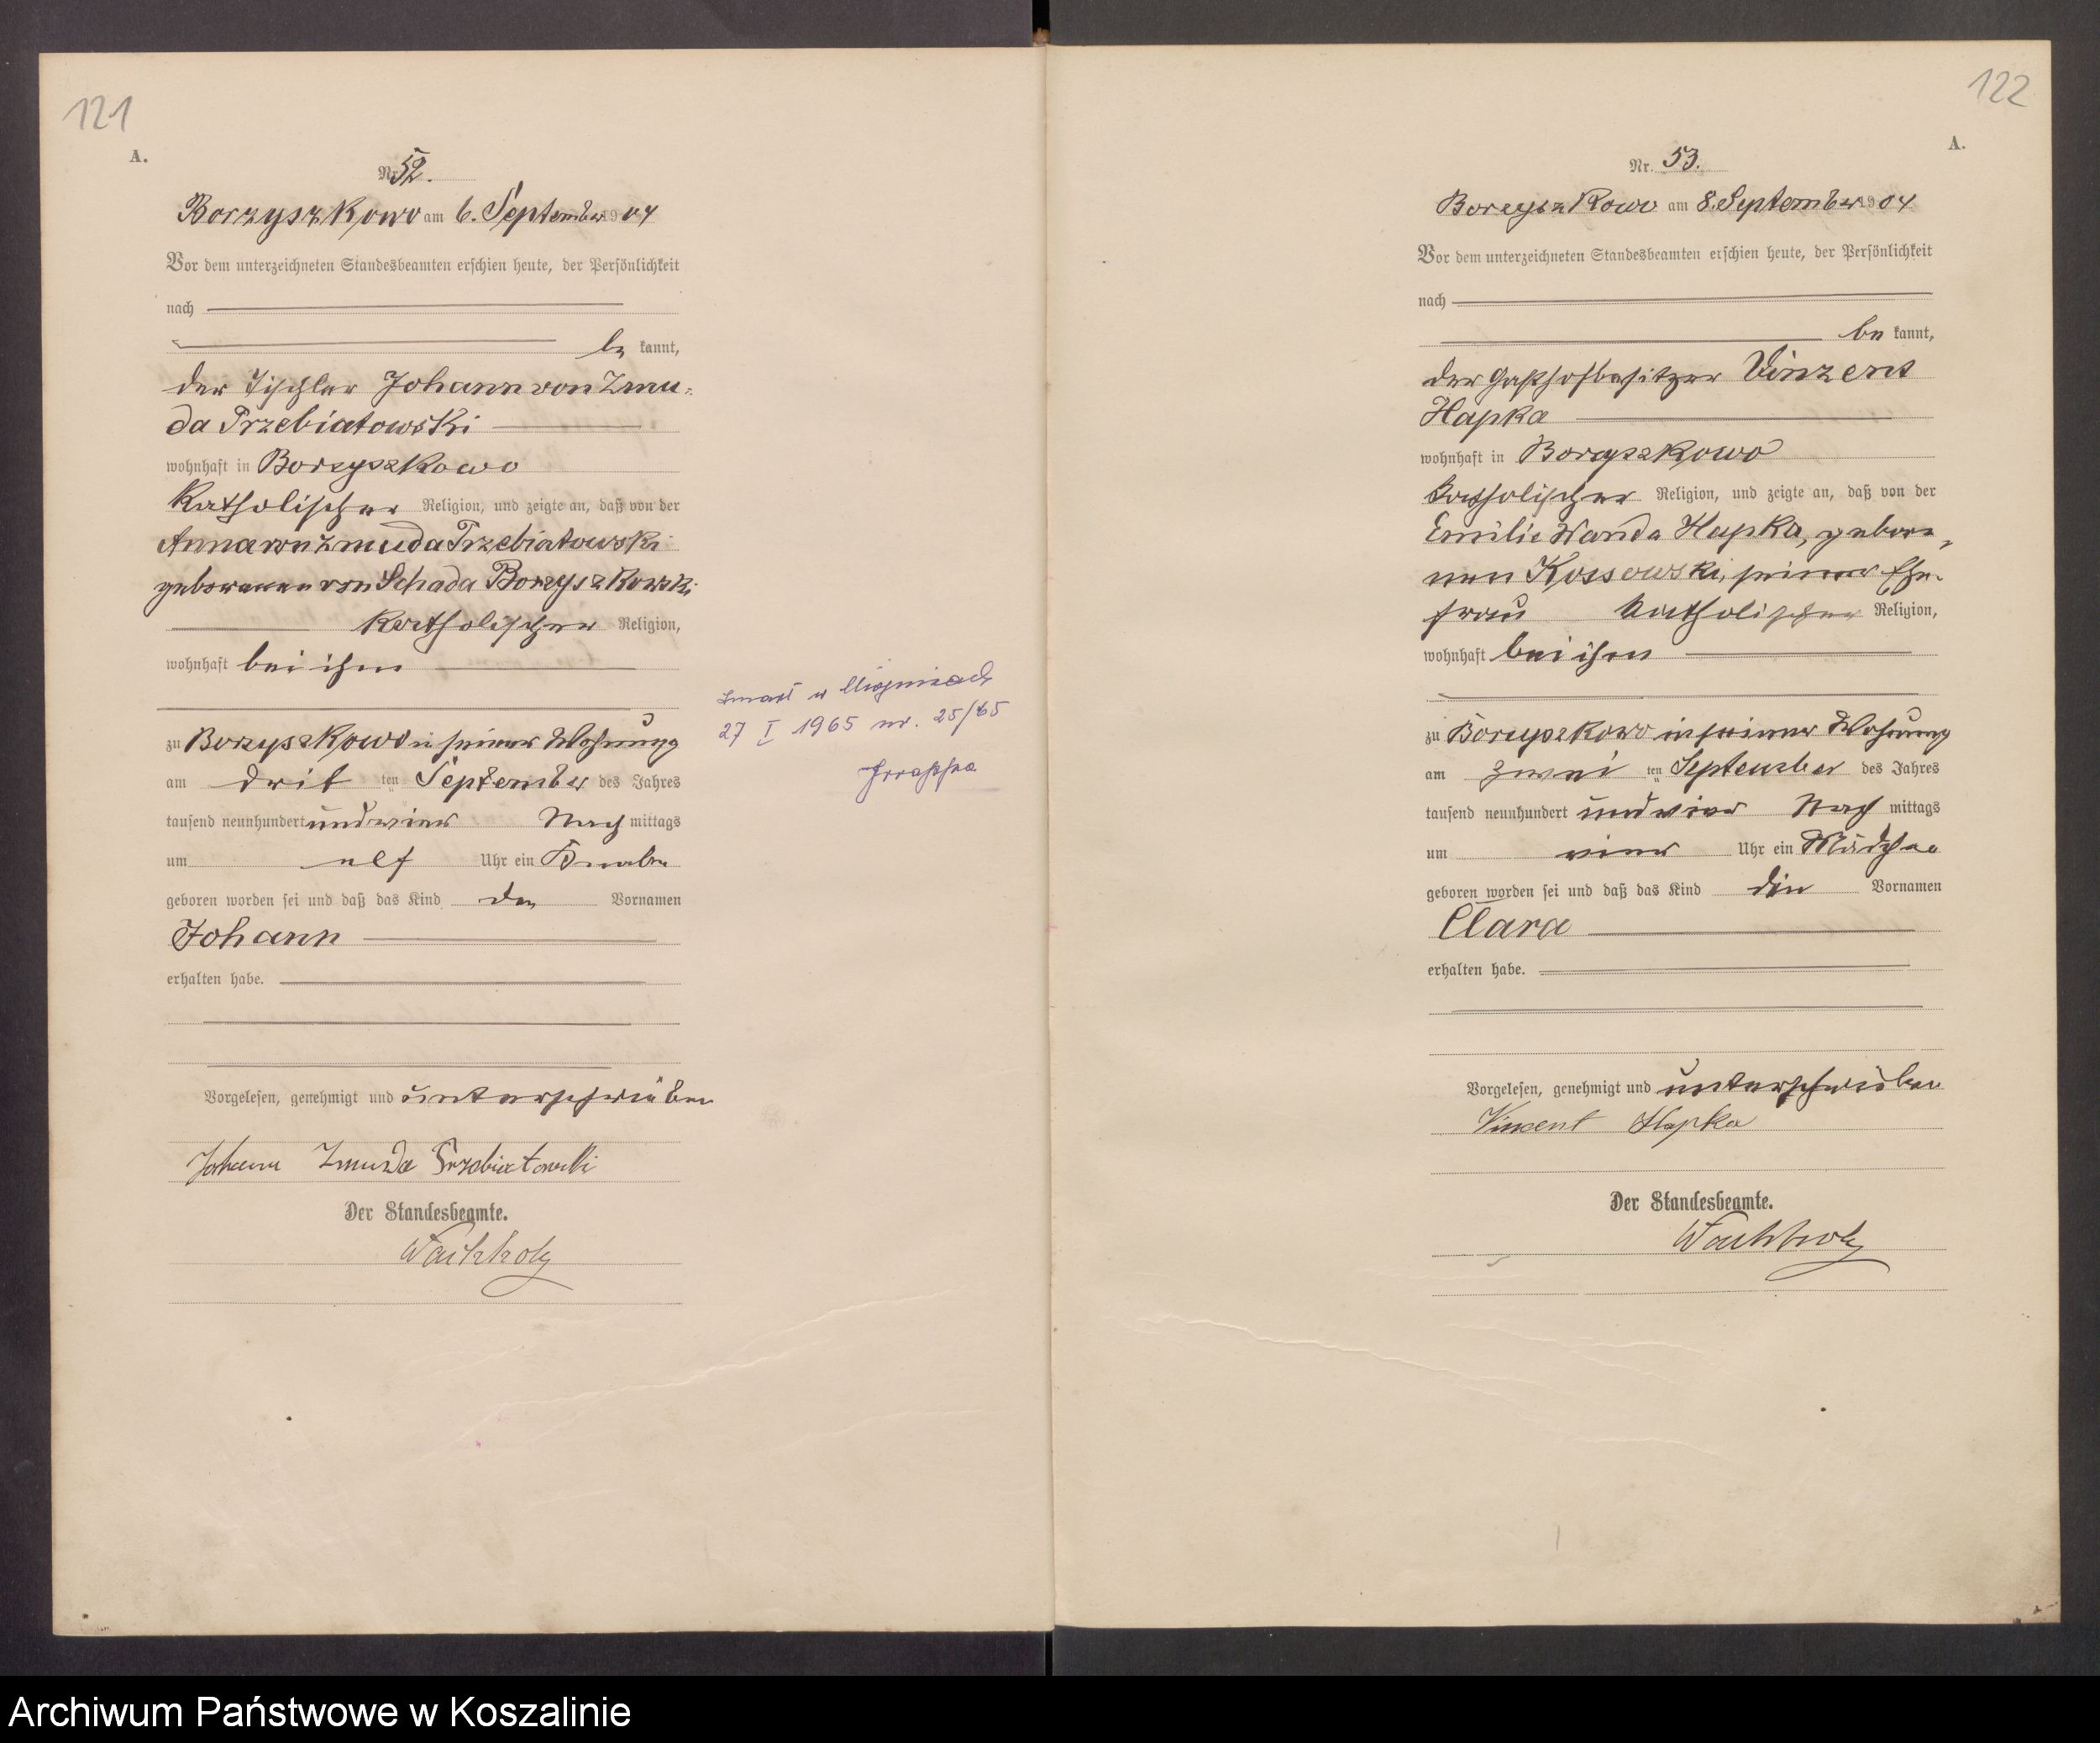 121
A.
Nr. 52.
Borzyszkowo am 6. September 1904
Vor dem unterzeichneten Standesbeamten erschien heute, der Persönlichkeit
nach
be kannt,
der Tischler Johann von Zmu-
da Trzebiatowski
wohnhaft in Borzyszkowo
katholischer Religion, und zeigte an, daß von der
Anna von Zmuda Trzebiatowski
geborenen von Schada Borzyszkowski
katholischer Religion,
wohnhaft bei ihm
zu Borzyszkowo in seiner Wohnung
am drit ten September des Jahres
tausend neunhundert und vier Nach mittags
um elf Uhr ein Knabe
geboren worden sei und daß das Kind den Vornamen
Johann
erhalten habe.
Vorgelesen, genehmigt und unterschrieben
Johann Zmuda Trzebiatowski
Der Standesbeamte.
Wachholz
zmarł w
27 I 1965 nr. 25/65
122
A.
Nr. 53.
Borzyszkowo am 8. September 1904
Vor dem unterzeichneten Standesbeamten erschien heute, der Persönlichkeit
nach
be kannt,
der Gasthofbesitzer Vinzent
Hapka
wohnhaft in Borzyszkowo
katholischer Religion, und zeigte an, daß von der
Emilie Wanda Hapka, gebore-
nen Kossowski, seiner Ehe-
frau katholischer Religion,
wohnhaft bei ihm
zu Borzyszkowo in seiner Wohnung
am zwei ten September des Jahres
tausend neunhundert und vier Nach mittags
um vier Uhr ein Mädchen
geboren worden sei und daß das Kind den Vornamen
Clara
erhalten habe.
Vorgelesen, genehmigt und unterschrieben
Vincent Hapka
Der Standesbeamte.
Wachholz
Archiwum Państwowe w Koszalinie